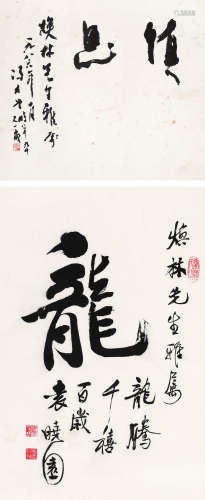 慎思
焕林先生雅属
一九八六年十月
焕林先生雅屬
龍
龍騰
千禧
百歲
袁曉園